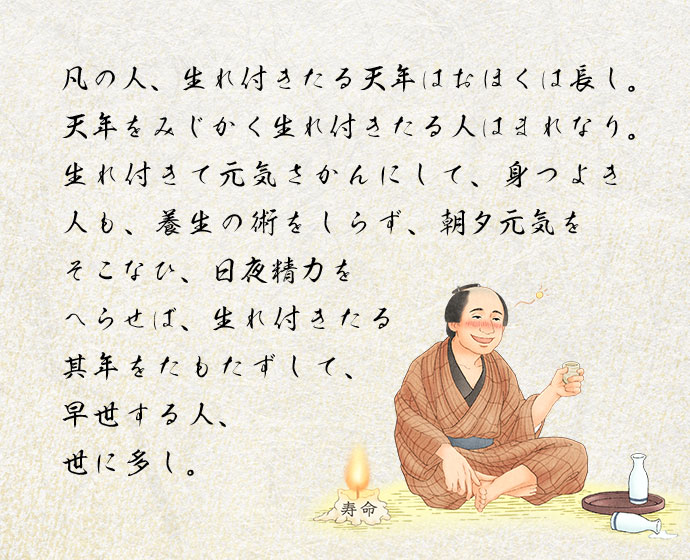 凡の人、生れ付きたる天年はおほくは長し。
天年をみじかく生れ付きたる人はまれなり。
生れ付きて元気さかんにして、身つよき
人も、養生の術をしらず、朝夕元気を
そこなひ、日夜精力を
へらせば、生れ付きたる
其年をたもたずして、
早世する人、
世に多し。
寿命